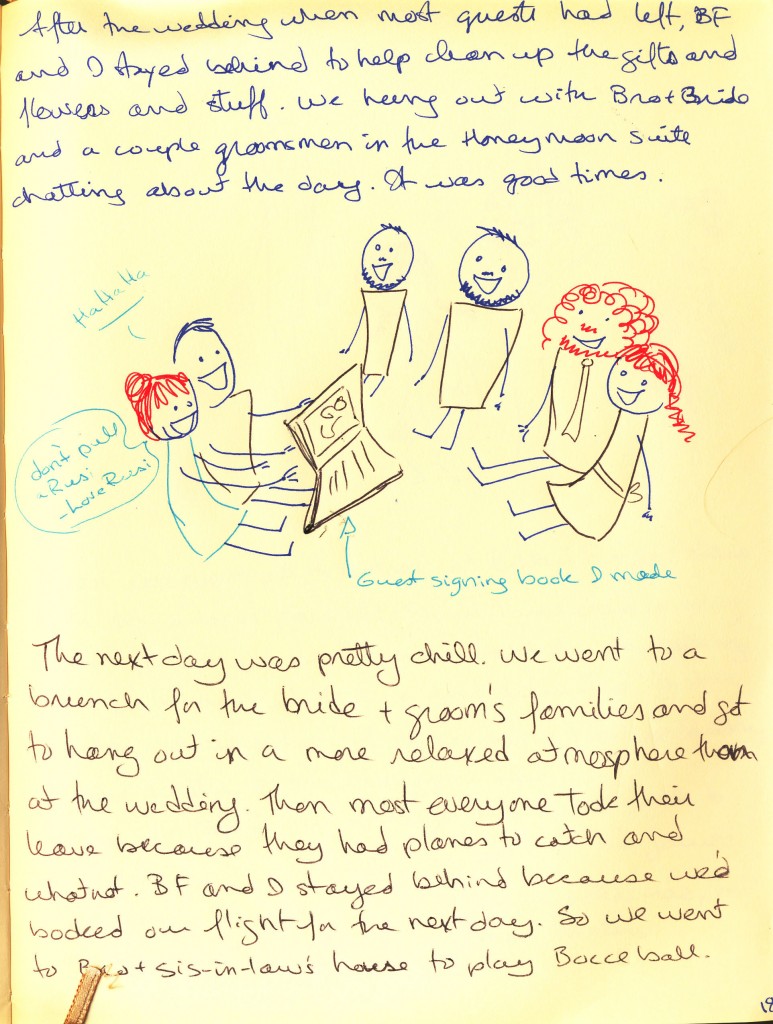 After the wedding when most guests had left, BF
and I stayed behind to help clean up the gifts and
flowers and stuff. We hung out with Bro + Bride
and a couple groomsmen in the Honeymoon Suite
chatting about the day. It was good times.
HaHaHa
don't pull
a Rusi
-Love Rusi
Guest signing book I made
The next day was pretty chill. We went to a
brunch for the bride + groom's families and got
to hang out in a more relaxed atmosphere than
at the wedding. Then most everyone took their
leave because they had planes to catch and
whatnot. BF and I stayed behind because we'd
booked our flight for the next day. So we went
to Bro + sis-in-law's house to play Bocce ball.